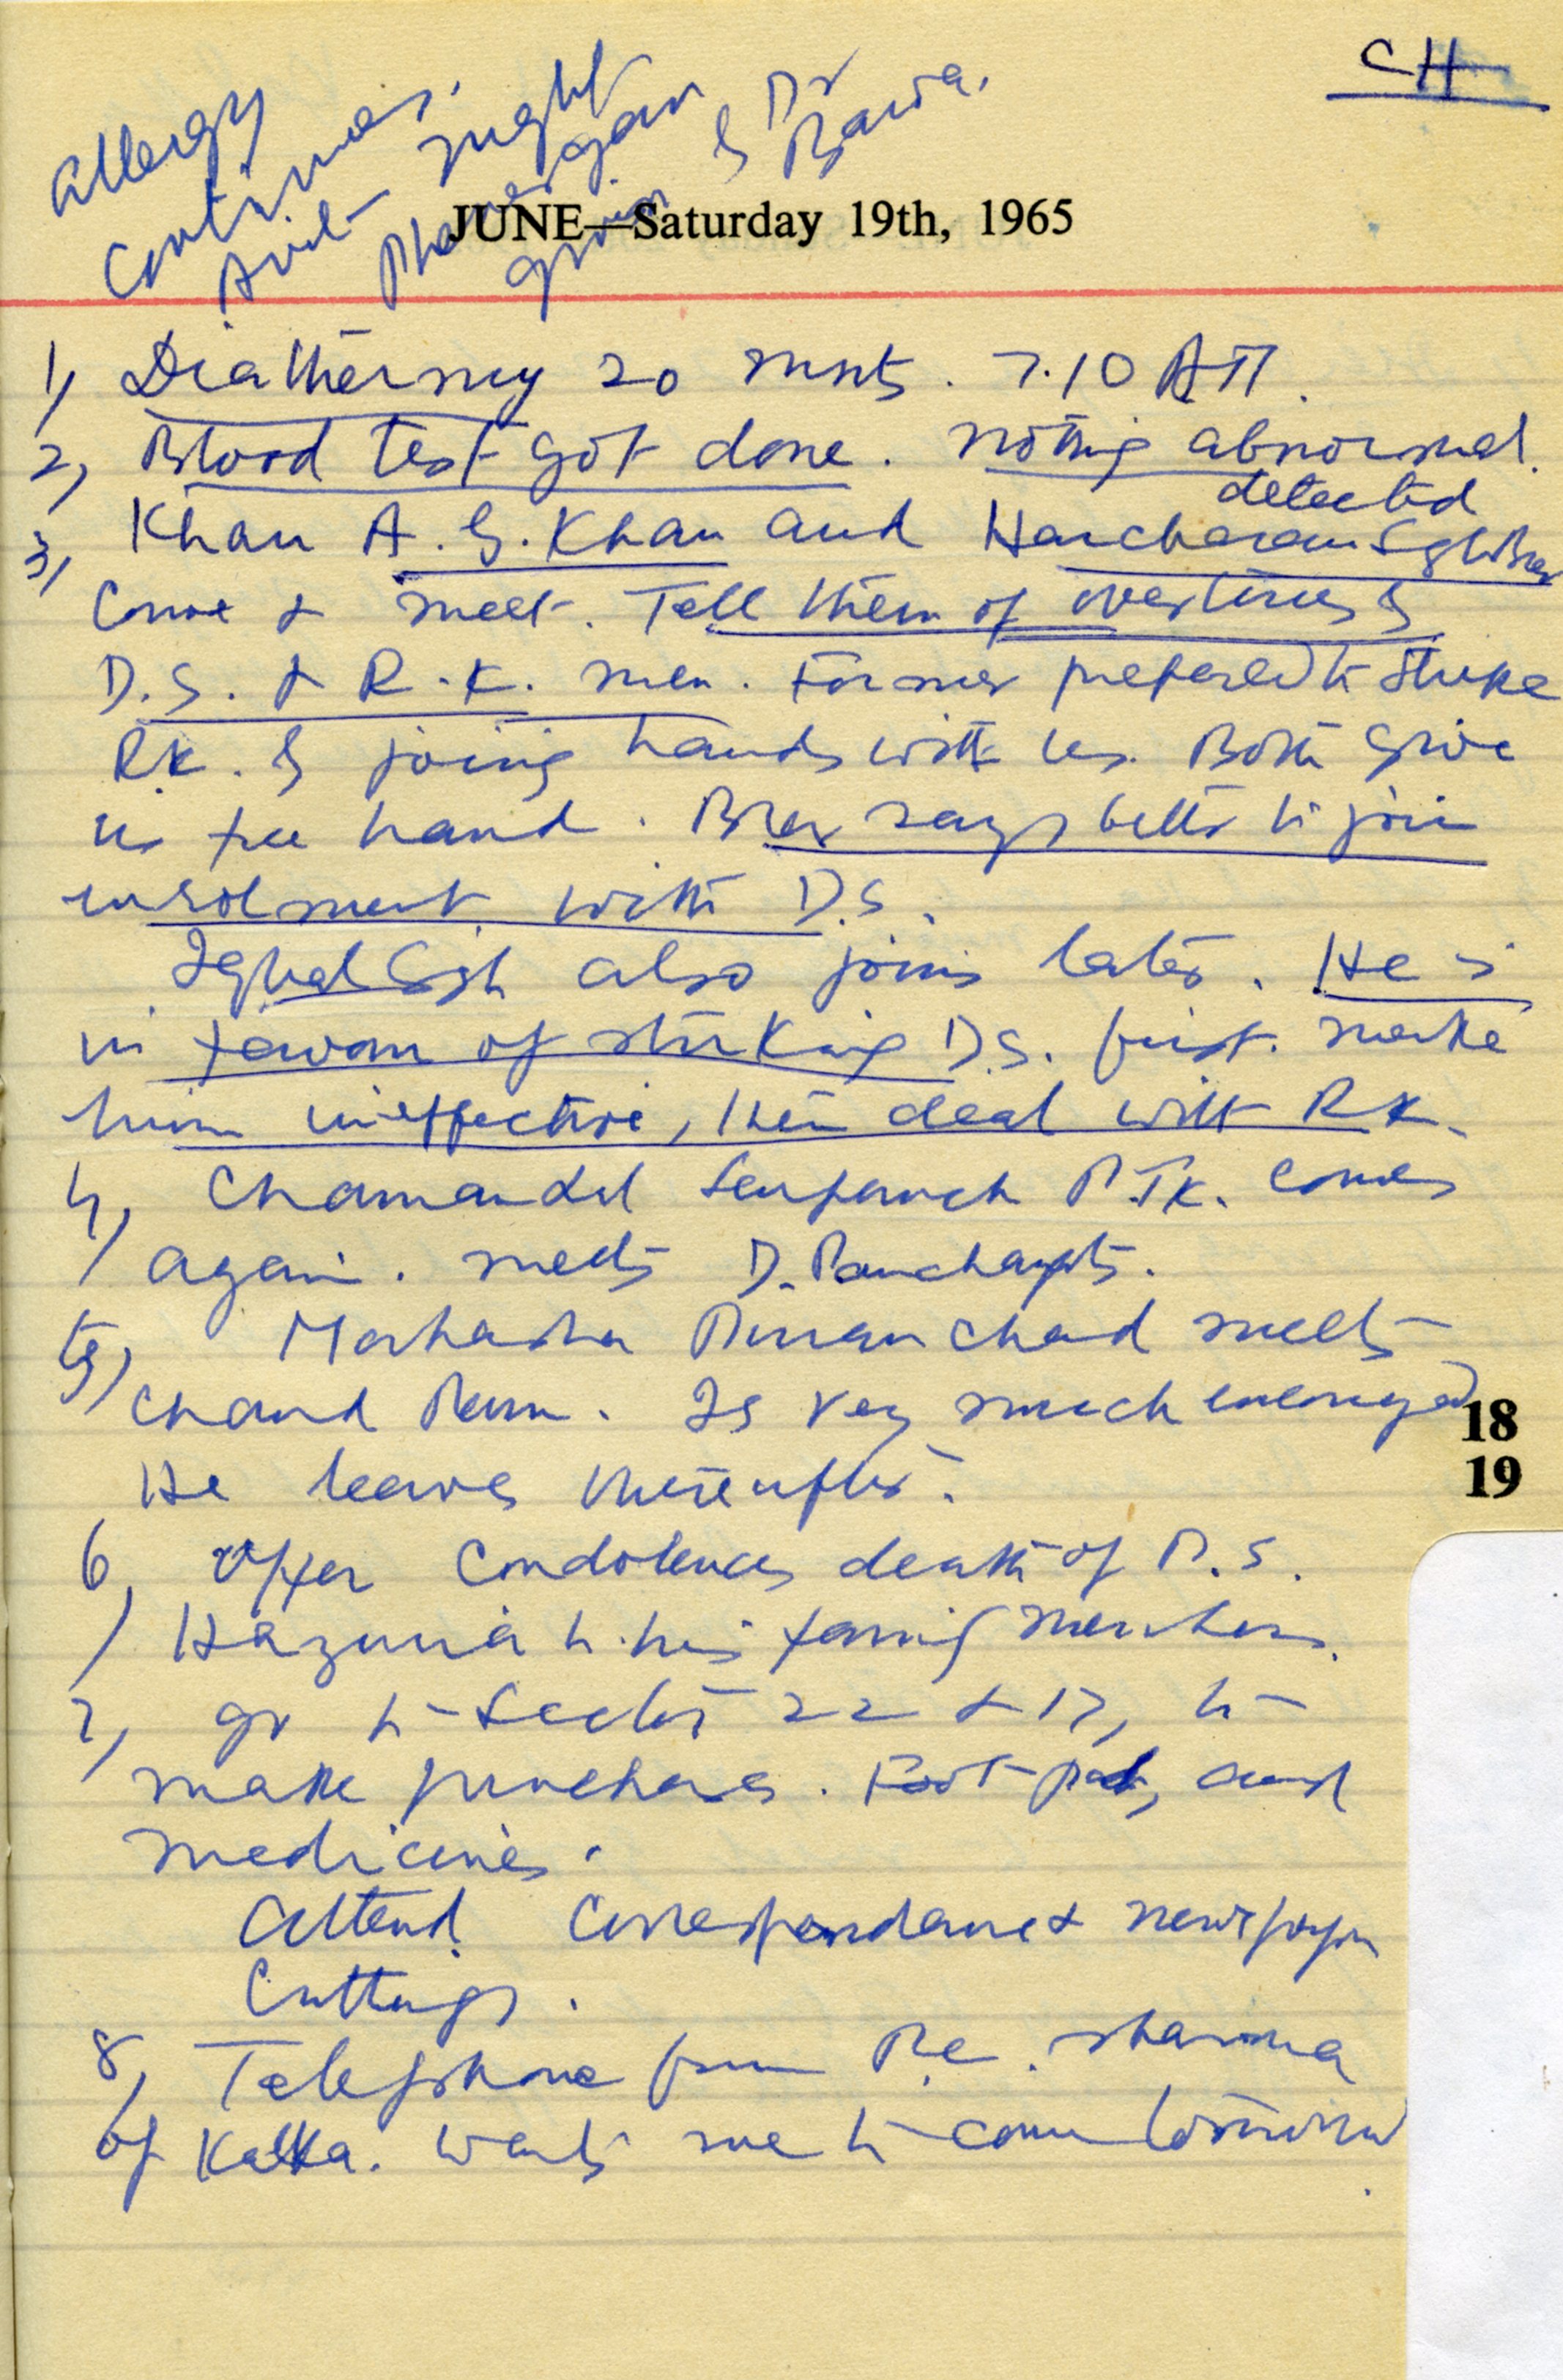 CH
Allergy
continues.
Avil night
Phenergan
given by Dr
Bawa.
JUNE—Saturday 19th, 1965
1) Diathermy 20 mnts. 7.10 AM.
2) Blood test got done. Nothing abnormal
detected
3) Khan A. G. Khan and Harcharan Sgh Brar
Come & meet. Tell them of overtures by
D.S. & R.K. men. Former prepared to strike
RK. by joing hands with us. Both give
us free hand. Brar says better to join
enrolment with D.S.
Iqbal Sigh also joins later. He is
in favour of striking D.S. first. make
him ineffective, then deal with RK.
4) Chamanlal Sarpanch P.TK. comes
again. meets D. Panchayats.
5) Mahasha Puran Chand meets
Chand Ram. Is very much
18
He leaves thereafter.
19
6) Offer Condolences death of P.S.
Hazuria to his family members.
7) go to Sector 22 & 17, to
make purchases. Foot and
medicines.
Attend Correspondance & newspaper
Cuttings.
8) Telephone from Sharma
of Kalka. Wants me to come tomorrow.